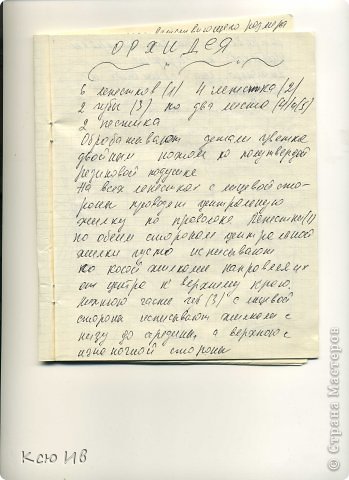 соответствующего размера
ОРХИДЕЯ
6 лепестков (1) 4 лепестка (2)
2 губы (3) по два листа (4)(5)
2 пестика
Обрабатывают детали цветка
двойным ножом на полутвердой
резиновой подушке
На всех лепестках с лицевой сто-
роны проводят центральную
жилку по проволоке Лепестки (1)
по обеим сторонам центральной
жилки густо исписывают
косой жилками
от центра к верхнему краю,
нижнюю часть губ (3) с лицевой
стороны исписывают жилками с
низу до середины, а верхнюю с
изнаночной стороны
Ксю ИВ
© Страна Мастеров